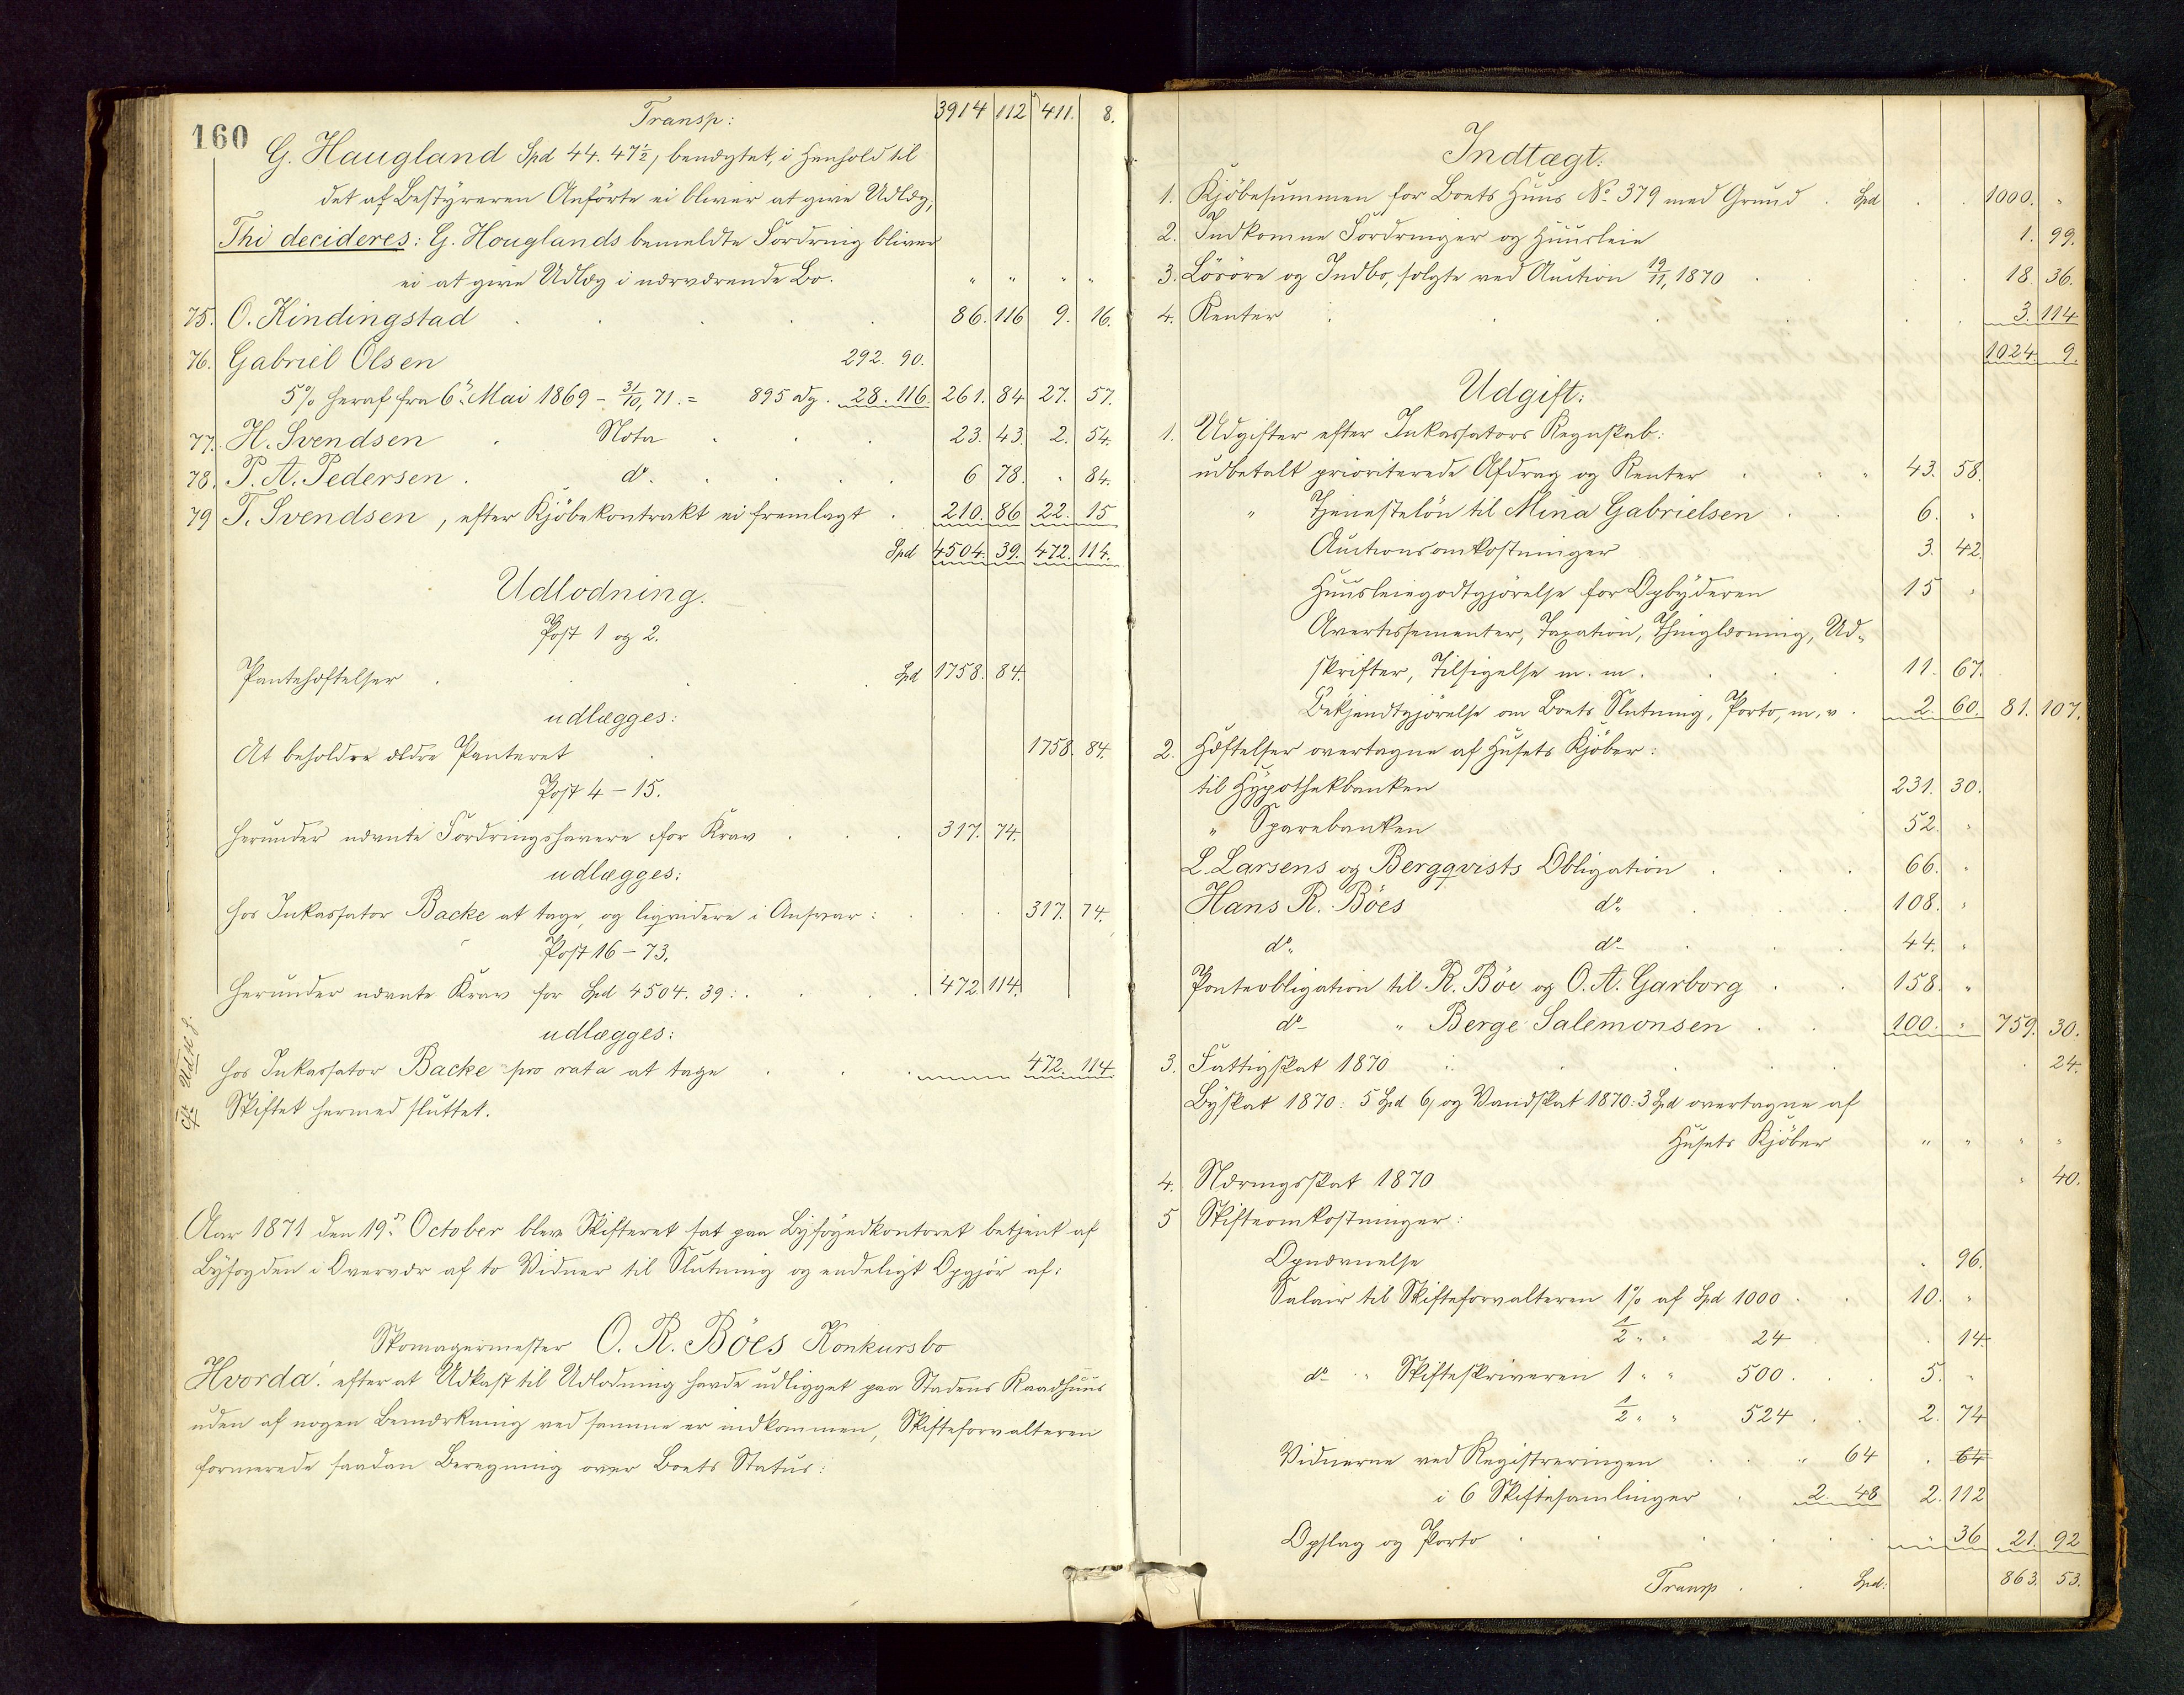 160
Transp: 3914 112 411. 8.
G. Haugland Spd 44. 47½, benægtet, i Henhold til
det af Bestyreren Anførte ei bliver at give Udlæg;
Thi decideres: G. Houglands bemeldte Fordring bliver
ei at give Udlæg i nærværende Bo. " " " "
75. O. Kindingstad 86. 116 9. 16.
76. Gabriel Olsen 292. 90.
5% heraf fra 6te Mai 1869 - 31/10, 71. = 895 Dg. 28. 116. 261. 84 27. 57.
77. H. Svendsen Nota 23. 43. 2. 54.
78. P. A. Pedersen do. 6 78. " 84.
79 T. Svendsen, efter Kjöbekontrakt ei fremlagt 210. 86 22. 15
Spd 4504. 39. 472. 114.
Udlodning.
Post 1 og 2.
Pantehæftelser Spd 1758. 84.
udlægges:
At beholdre ældre Panteret 1758. 84.
Post 4 - 15.
herunder nævnte Fordringshavere for Krav 317. 74.
udlægges:
hos Inkassator Backe at tage, og liqvidere i Ansvar: 317. 74.
Post 16 - 73.
herunder nævnte Krav for Spd 4504. 39: 472. 114.
udlægges:
hos Inkassator Backe pro rata at tage 472. 114
Skiftet hermed sluttet.
Aar 1871 den 19de October blev Skifteret sat paa Byfogedkontoret betjent af
Byfogden i Overvær af to Vidner til Slutning og endeligt Opgjör af:
Skomagermester O. R. Böes Konkursbo
Hvorda! efter at Udkast til Udlodning havde udligget paa Stadens Raadhuus
uden at nogen Bemærkning ved samme er indkommen, Skifteforvalteren
formerede saadan Beregning over Boets Status:
Indtægt:
1. Kjöbesummen for Boets Huus No. 379 med Grund. Spd 1000. "
2. Indkomne Fordringer og Huusleie 1. 99.
3. Lösöre og Indbo, solgte ved Auction 19/11, 1870 18. 36.
4. Renter 3. 114
1024. 9.
Udgift:
1. Udgifter efter Inkassators Regnskab:
udbetalt prioriterede Afdrag og Renter 43. 58.
" Tjenestelön til Mina Gabrielsen 6. "
Auctionsomkostninger 3. 42
Huusleiegodtgjörelse for Opbyderen 15 "
Avertissementer, Taxation, Thinglæsning, Ud-
skrifter, Tilsigelse m. m. 11. 67.
Bekjendtgjörelse om Boets Slutning, Porto, m. v. 2. 60. 81. 107.
2. Hæftelser overtagne af Husets Kjöber:
til Hypothekbanken 231. 30.
" Sparebanken 52. "
L. Larsens og Bergqvists Obligation 66. "
Hans R. Böes do. 108. "
do. do. 44. "
Panteobligation til R. Böe og O. A. Garborg 158. "
do " Berge Salemonsen 100. " 759. 30.
3. Fattigskat 1870 24.
Byskat 1870: 5 Spd 6, og Vandskat 1870: 3 Spd overtagne af
Husets Kjöber " " " "
4. Næringsskat 1870 " 40.
5 Skifteomkostninger:
Opnævnelse " 96.
Salair til Skifteforvalteren 1% af Spd 1000 10. "
½ " " 24 14.
do " Skifteskriveren 1 " " 500. 5. "
½ " " 524. 2. 74
Vidnerne ved Registreringen " 64 64
i 6 Skiftesamlinger 2. 48 2. 112
Opslag og Porto " 36 21. 92
Transp Spd: 863. 53.